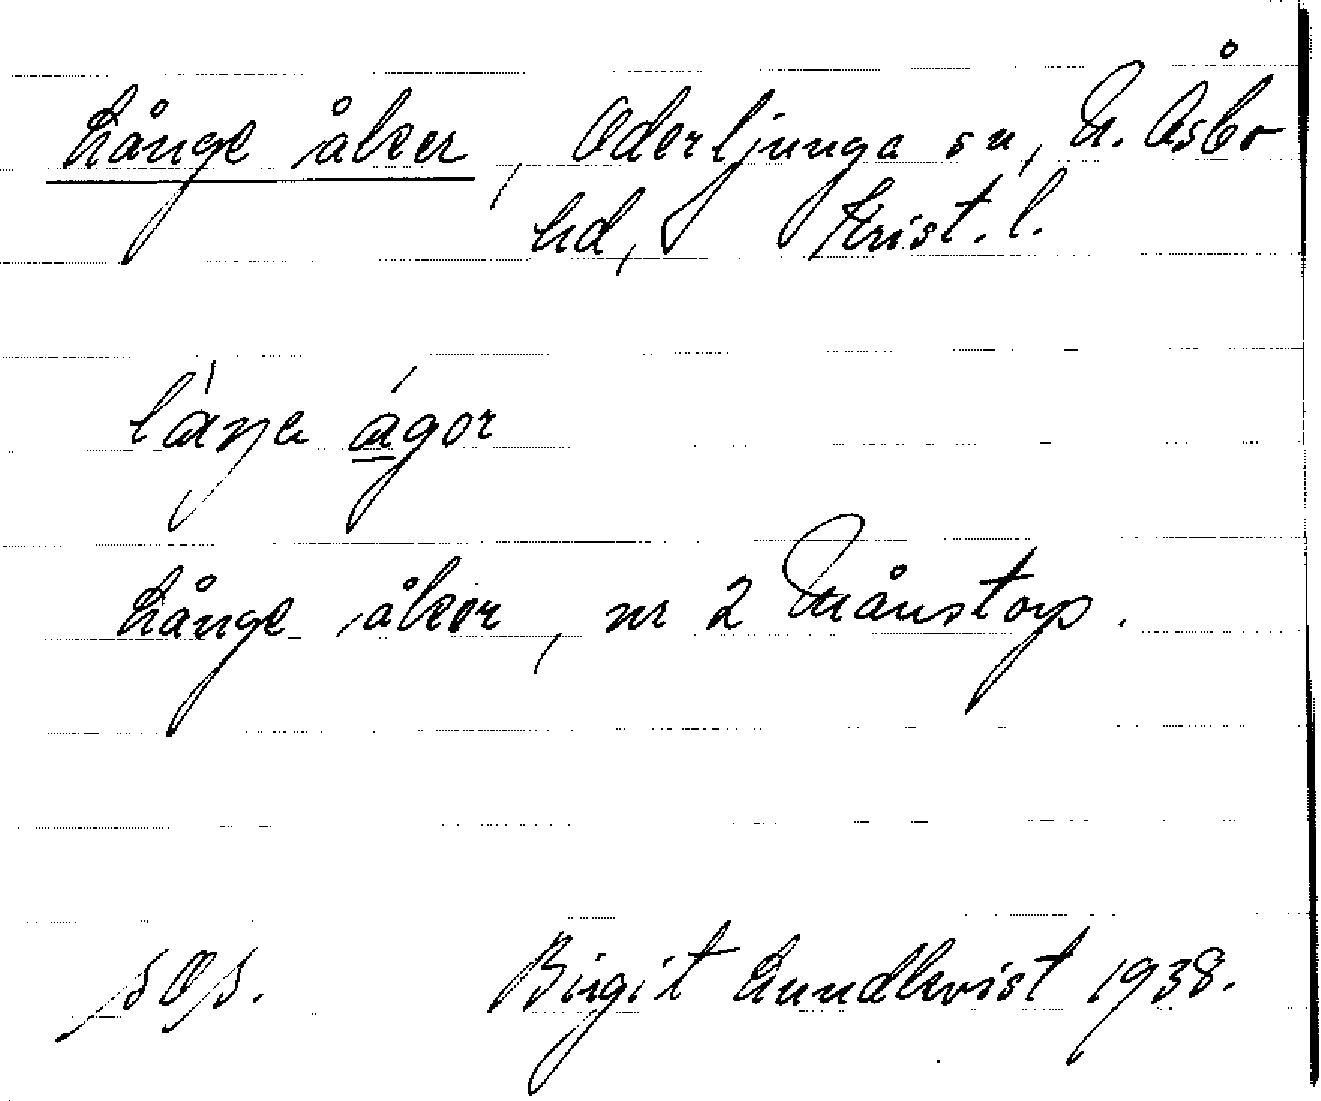 Långe åker, Oderljunga sn, N. Åsbo
hd, Krist. l.
låŋa ågor
Långe åkor, nr 2 Månstorp.
SOS. Birgit Lundkvist 1938.